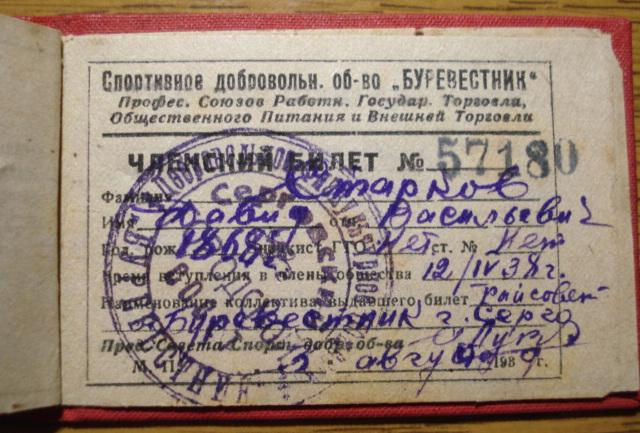 Спортивное добровольн. об-во „БУРЕВЕСТНИК“
Професс. Союзов Работн. Государ. Торговли,
Общественного Питания и Внешней Торговли
ЧЛЕНСКИЙ БИЛЕТ № 57180
Фамилия Старков
Имя Давид отч. Васильевич
Год рожд. Значкист ГТО Нет ст. № Нет
Время вступления в члены общества 12/IV 38 г.
Наименование коллектива выдавшего билет Райсовет
Буревестник г. Серго
Пред. Совета Спорт. добр. об-ва
М. П. 2 августа 1939 г.